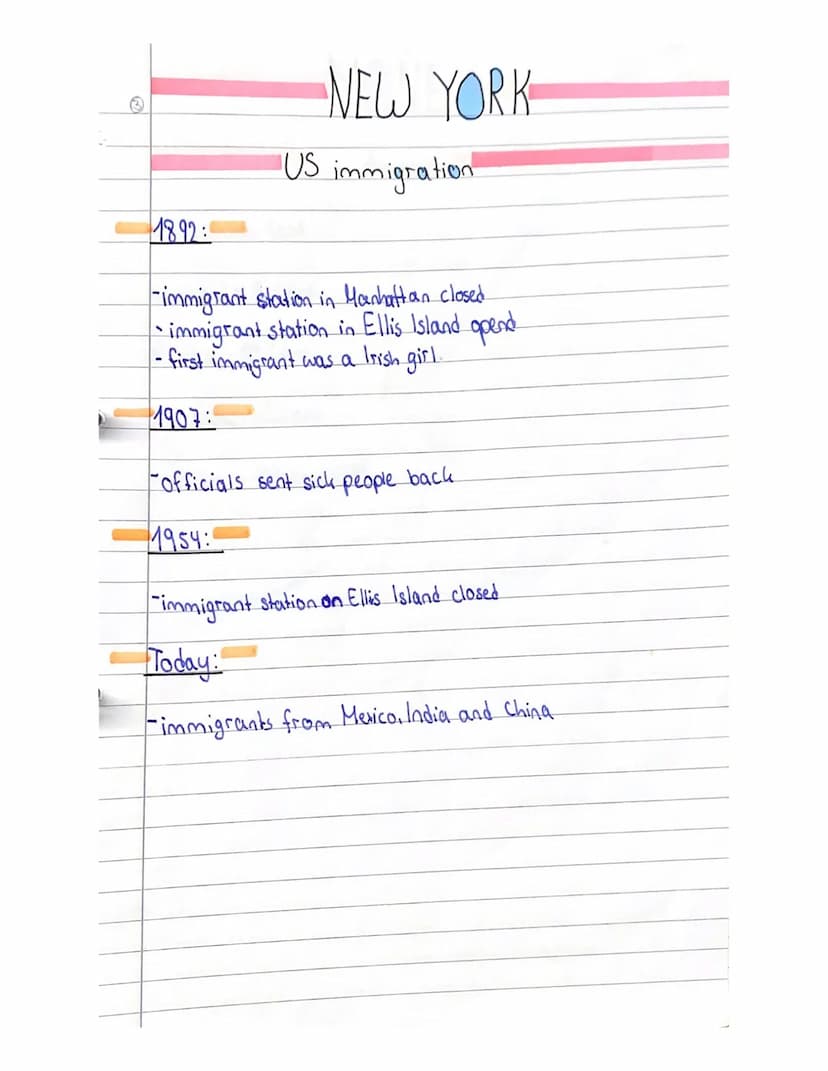 NEW YORK
US immigration
1892:
-immigrant station in Manhattan closed
- immigrant station in Ellis Island opend
- first immigrant was a Irish girl.
1907:
-officials sent sick people back
1954:
-immigrant station on Ellis Island closed
Today:
-immigrants from Mexico, India and China